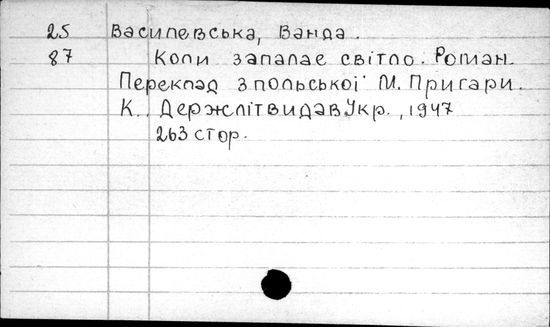 25 Василевська, Ванда.
87 Коли запалає світло. Роман.
Переклад з польської М. Пригари.
К., ДержлітвидавУкр., 1947
263 стор.